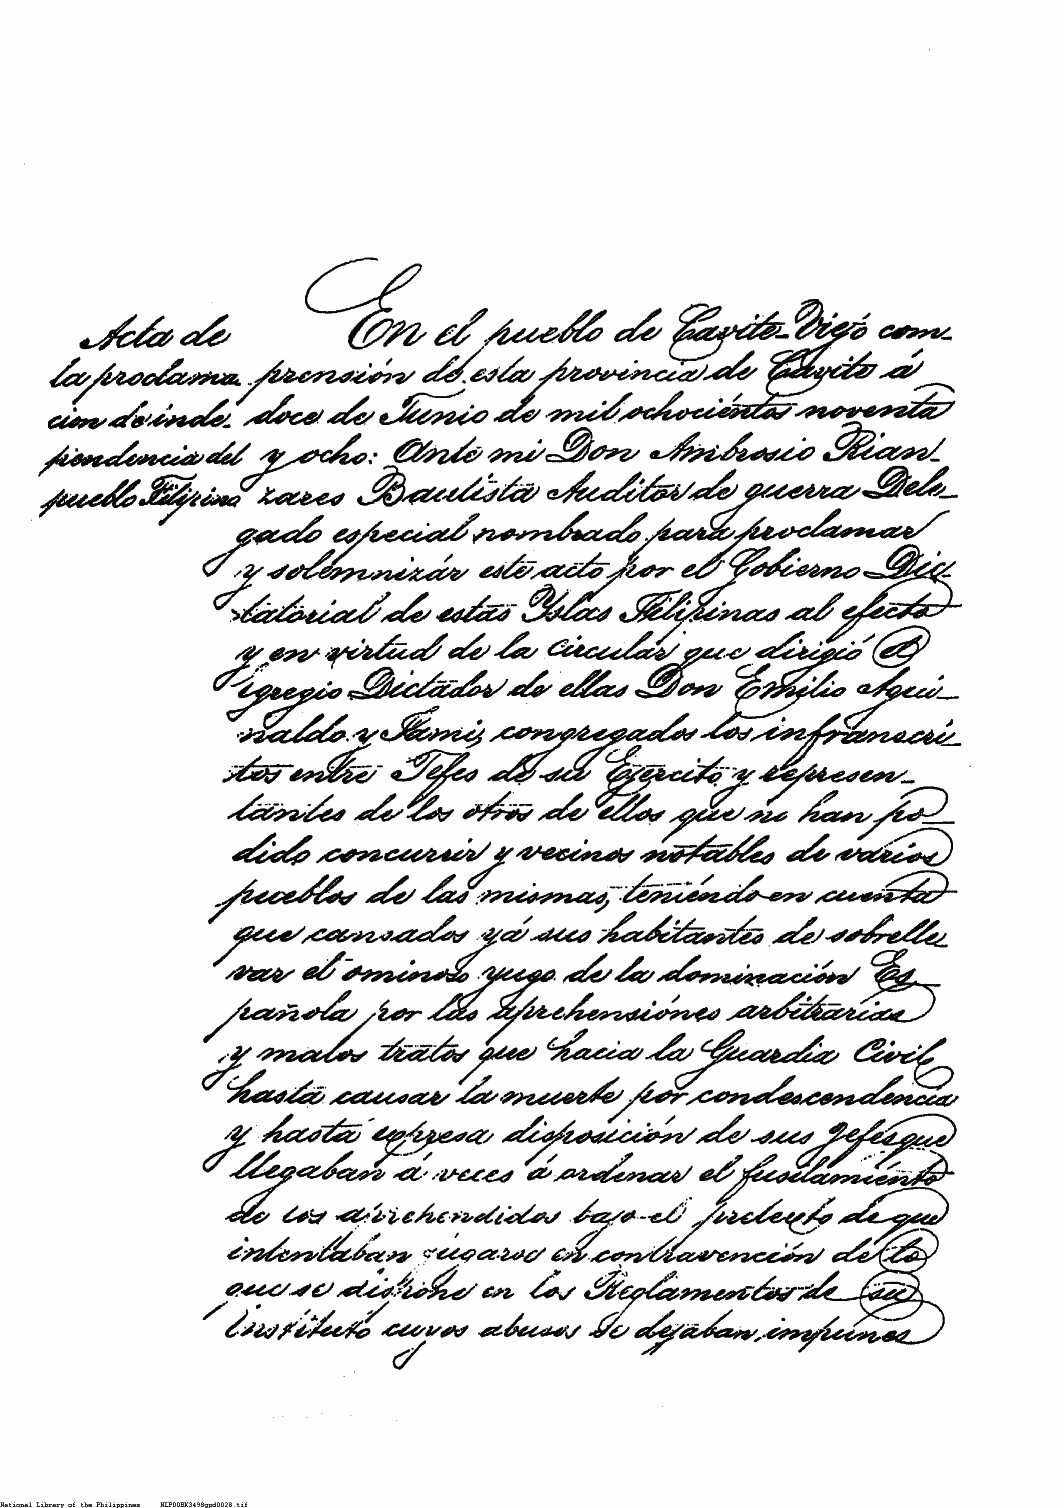 Acta de
la proclama-
cion de inde-
pendencia del
pueblo Filipino
En el pueblo de Cavite-Viejo com-
prensión de esta provincia de Cavite á
doce de Junio de mil ochociéntos noventa
y ocho: Ante mi Don Ambrosio Rian-
zares Bautista Auditor de guerra Dele-
gado especial nombrado para proclamar
y solemnizár este acto por el Gobierno Dic-
tatorial de estas Yslas Filipinas al efecto
y en virtud de la circular que dirigió el
egregio Dictador de ellas Don Emilio Agui-
naldo y Famy, congregados los infranscri-
tos entre Jefes de su Ejercito y represen-
tantes de los otros de ellos que no han po-
dido concurrir y vecinos notables de varios
pueblos de las mismas, teniéndo en cuenta
que cansados yá sus habitantes de sobrelle-
var el ominoso yugo de la dominación Es-
pañola por las aprehensiónes arbitrarias
y malos tratos que hacia la Guardia Civil
hasta causar la muerte por condescendencia
y hasta expresa disposición de sus Jefes que
llegaban á veces á ordenar el fusilamiénto
de los aprehendidos bajo el pretexto de que
intentaban fugarse en contravención de lo
que se dispone en los Reglamentos de su
Instituto cuyos abusos se dejaban impunes